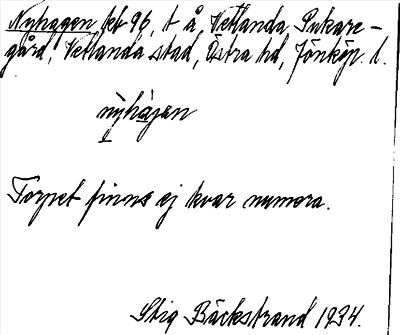 Nyhagen, kb 96, t å Vetlanda Pukare-
gård, Vetlanda stad, Östra hd, Jönköp. l.
nỳhàgen
Torpet finns ej kvar numera.
Stig Bäckstrand 1934.